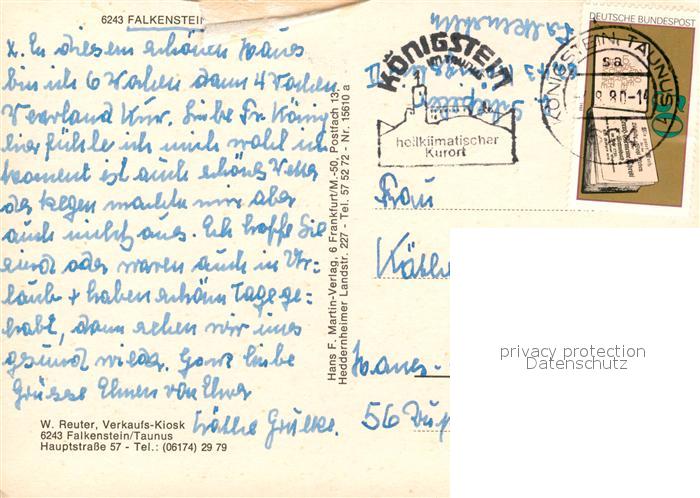 6243 FALKENSTEIN
x. In diesem schönen Haus
bin ich 6 Wochen dann 4 Wochen
Kur. Liebe Fr. König
hier fühle ich mich wohl im
Moment ist auch schönes Wetter
der Regen machte mir aber
auch nichts aus. Ich hoffe Sie
sind oder waren auch in Ur=
laub + haben schöne Tage ge=
habt, dann sehen wir uns
gesund wieder. Ganz liebe
Grüsse Ihnen von Ihrer
Käthe
W. Reuter, Verkaufs-Kiosk
6243 Falkenstein/Taunus
Hauptstraße 57 - Tel.: (06174) 29 79
Hans F. Martin-Verlag, 6 Frankfurt/M.-50, Postfach 13
Heddernheimer Landstr. 227 - Tel. 57 52 72 - Nr. 15610 a
Falkenstein
KÖNIGSTEIN
IM TAUNUS
heilklimatischer
Kurort
KÖNIGSTEIN, TAUNUS 1
sa
8.80-14
DEUTSCHE BUNDESPOST
50
Frau
Käthe
Hans-
56
privacy protection
Datenschutz